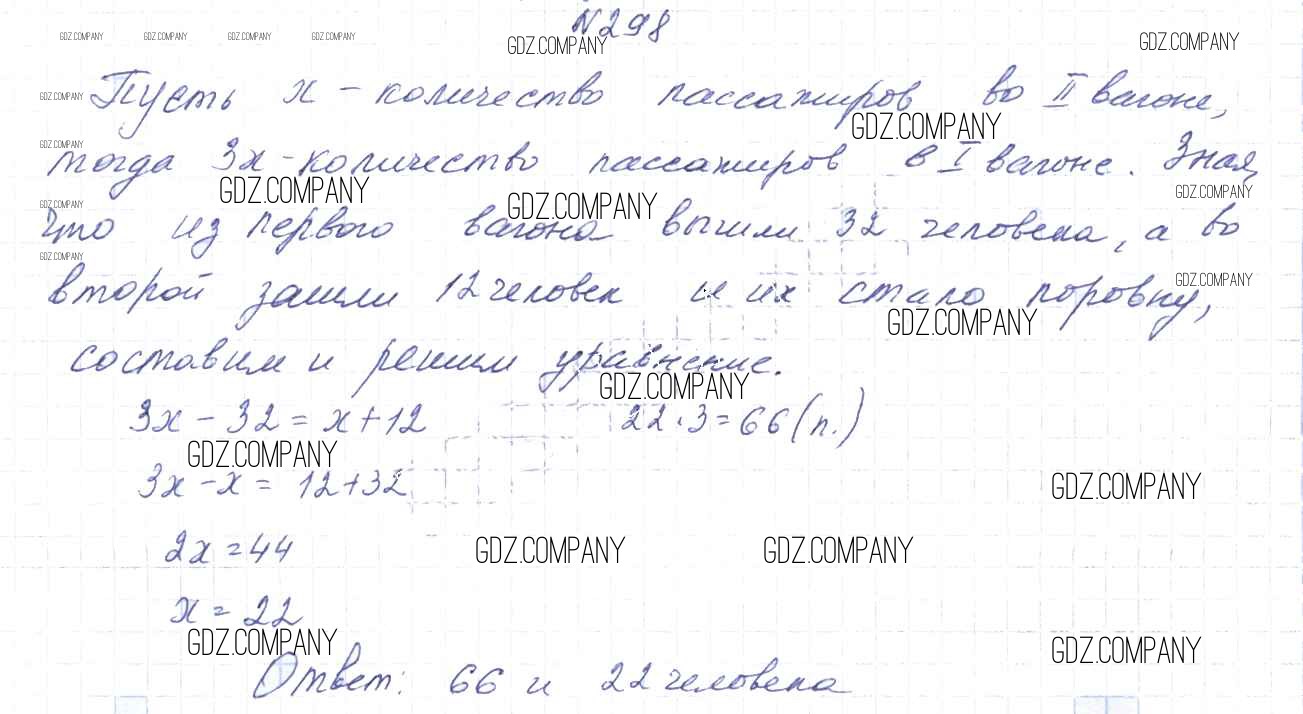 N298
GDZ.COMPANY GDZ.COMPANY GDZ.COMPANY GDZ.COMPANY GDZ.COMPANY GDZ.COMPANY
GDZ.COMPANY
Пусть x - количество пассажиров во II вагоне,
GDZ.COMPANY
GDZ.COMPANY
тогда 3x - количество пассажиров в I вагоне. Зная,
GDZ.COMPANY GDZ.COMPANY GDZ.COMPANY
GDZ.COMPANY
что из первого вагона вышли 32 человека, а во
GDZ.COMPANY
второй зашли 12 человек и их стало поровну,
GDZ.COMPANY
GDZ.COMPANY
составим и решим уравнение.
GDZ.COMPANY
3x - 32 = x + 12 22 · 3 = 66 (п.)
GDZ.COMPANY
3x - x = 12 + 32
GDZ.COMPANY
2x = 44
GDZ.COMPANY GDZ.COMPANY
x = 22
GDZ.COMPANY GDZ.COMPANY
Ответ: 66 и 22 человека